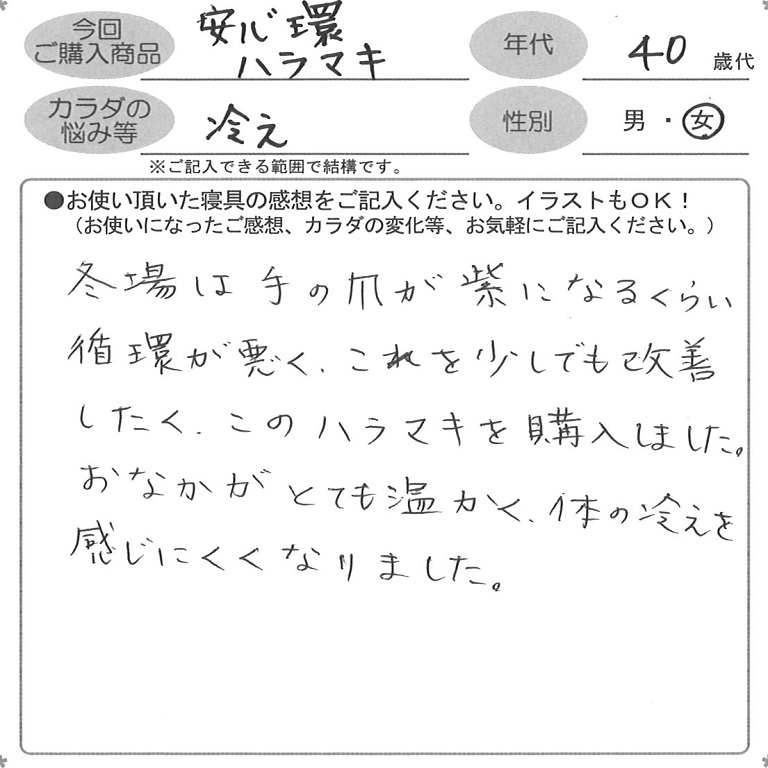 今回
ご購入商品
安心環
ハラマキ
年代
40 歳代
カラダの
悩み等
冷え
性別
男・女
※ご記入できる範囲で結構です。
●お使い頂いた寝具の感想をご記入ください。イラストもOK！
（お使いになったご感想、カラダの変化等、お気軽にご記入ください。）
冬場は手の爪が紫になるくらい
循環が悪く、これを少しでも改善
したく、このハラマキを購入しました。
おなかがとても温かく、体の冷えを
感じにくくなりました。